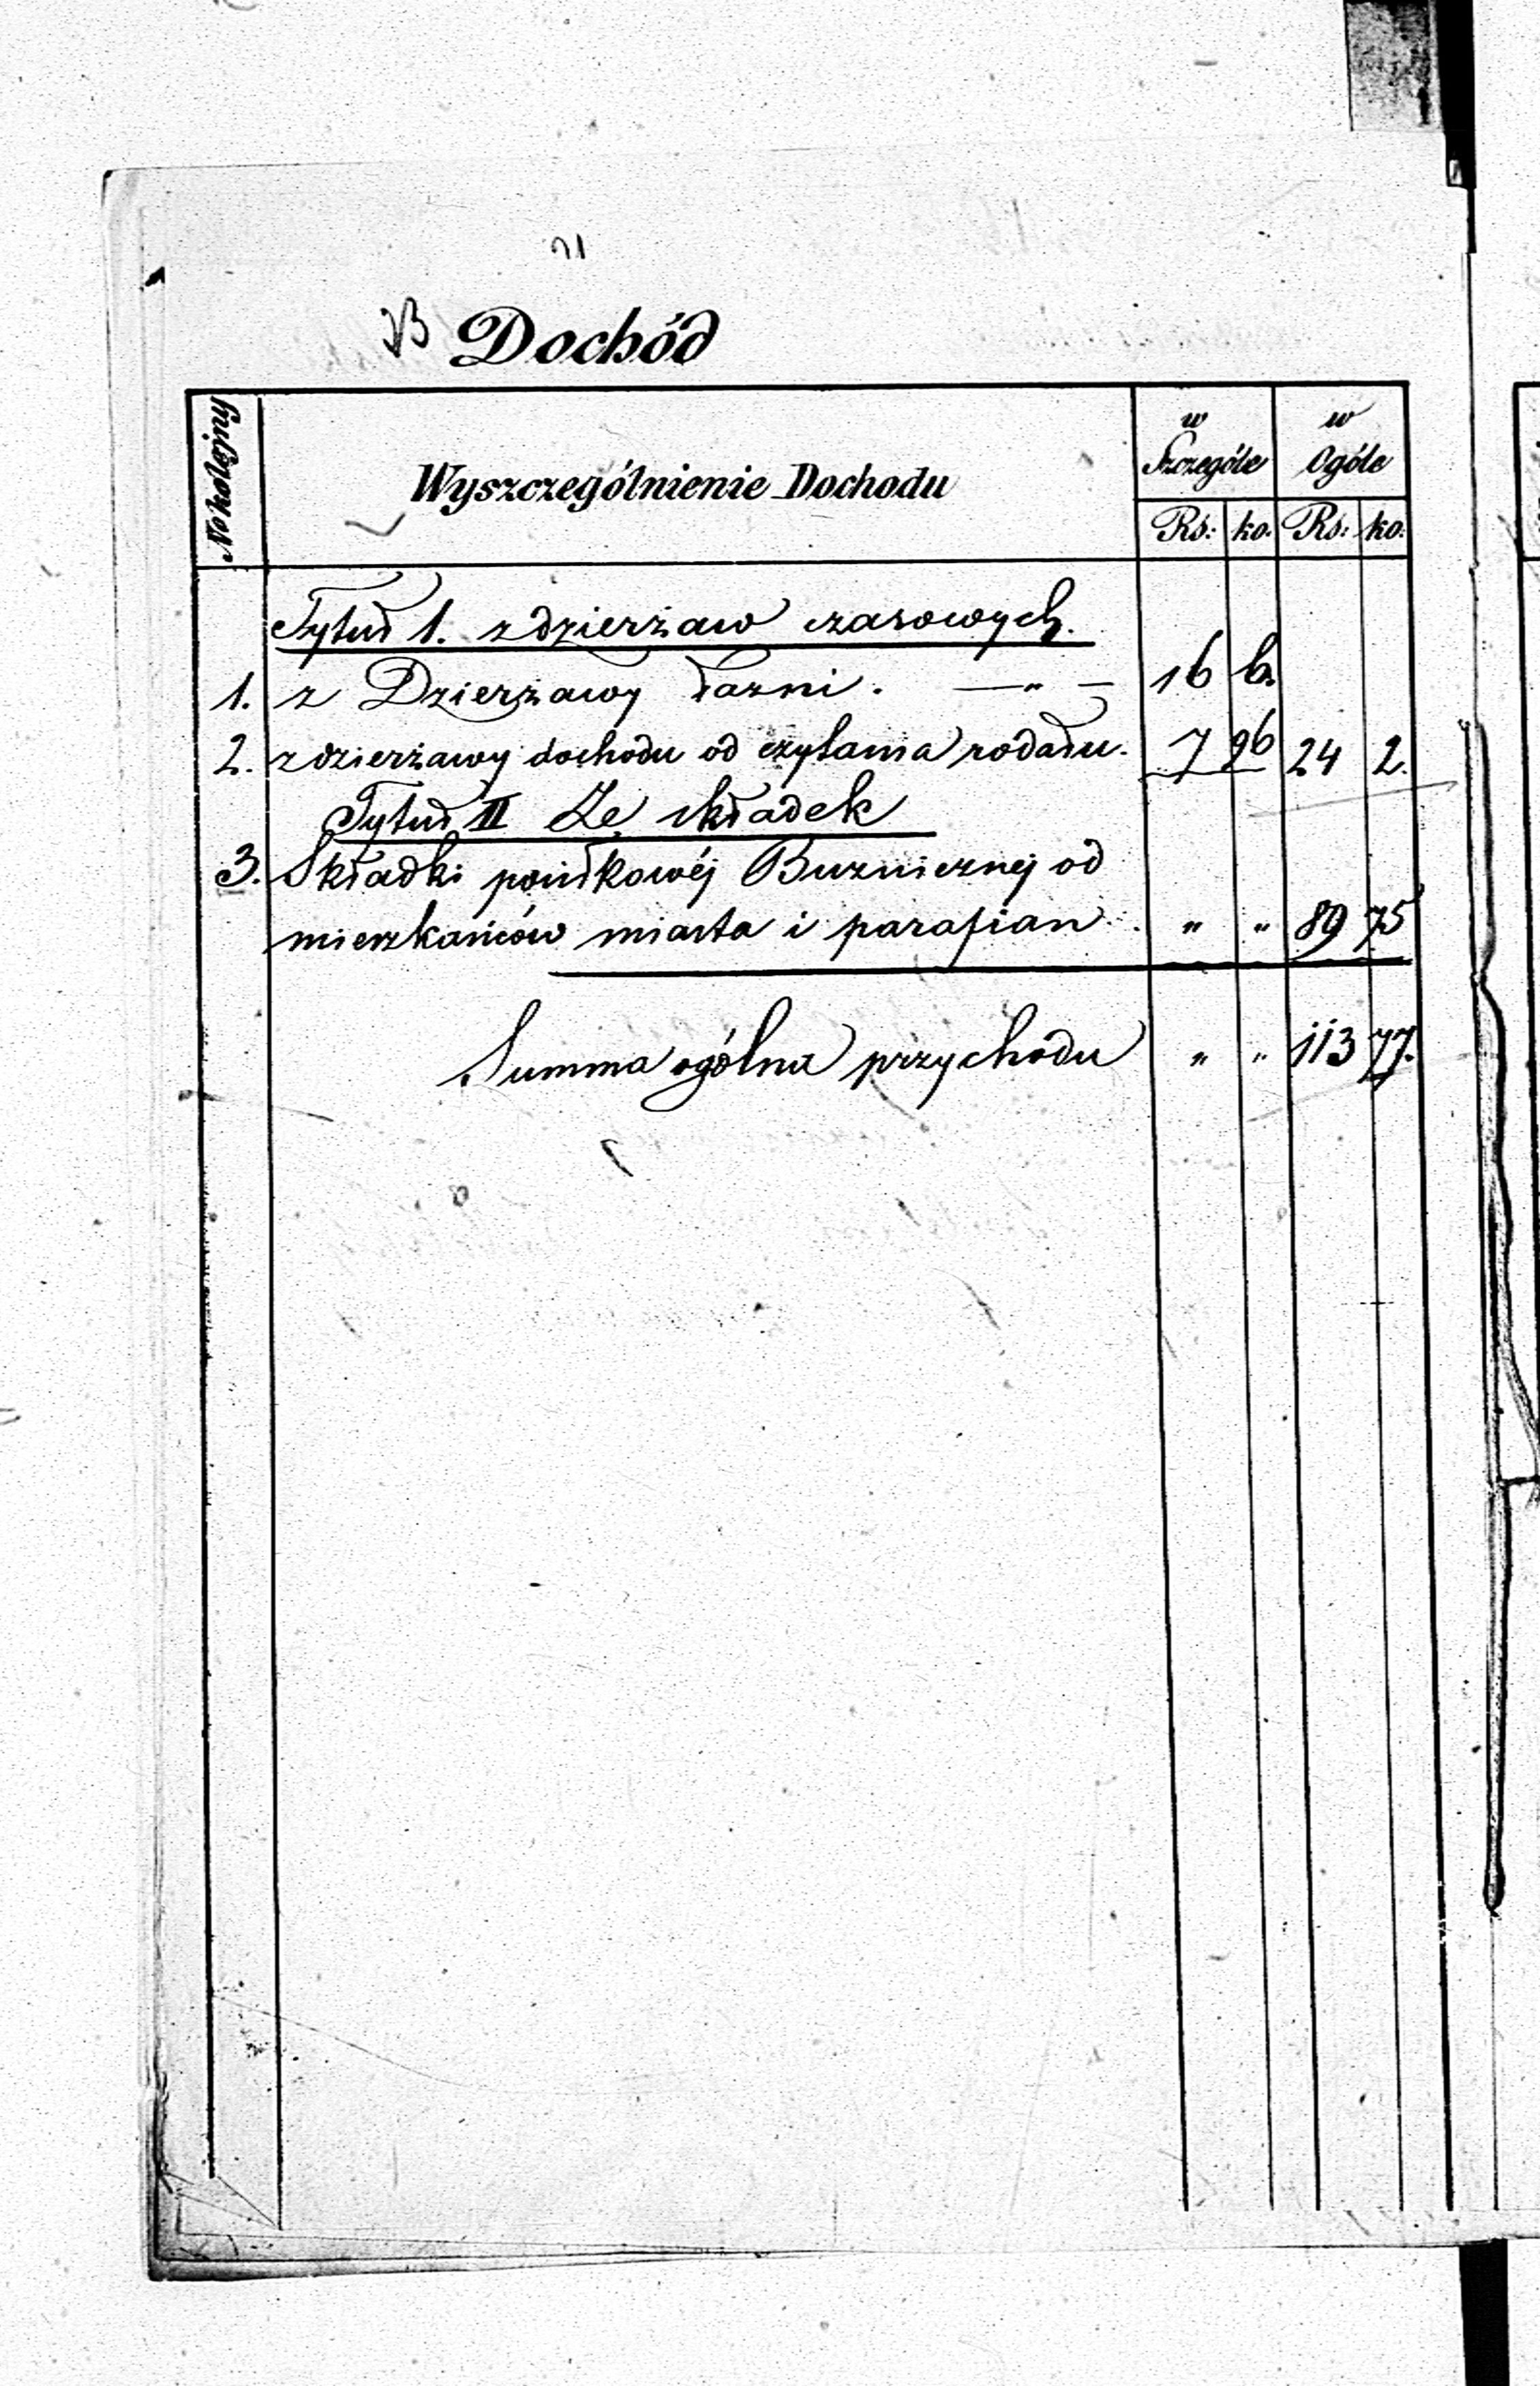 Dochód
No kolejny
Wyszczególnienie Dochodu
w Szczególe
w Ogóle
Rs: ko. Rs: ko:
Tytuł 1. z dzierżaw czasowych.
1. z Dzierżawy łaźni. —"— 16 6.
2. z dzierżawy dochodu od czytania rodału. 7 96 24 2.
Tytuł II Ze składek
3. Składki Bużnicznej od
mieszkańców miasta i parafian. " " 89 75
Summa ogólna przychodu " " 113 77.